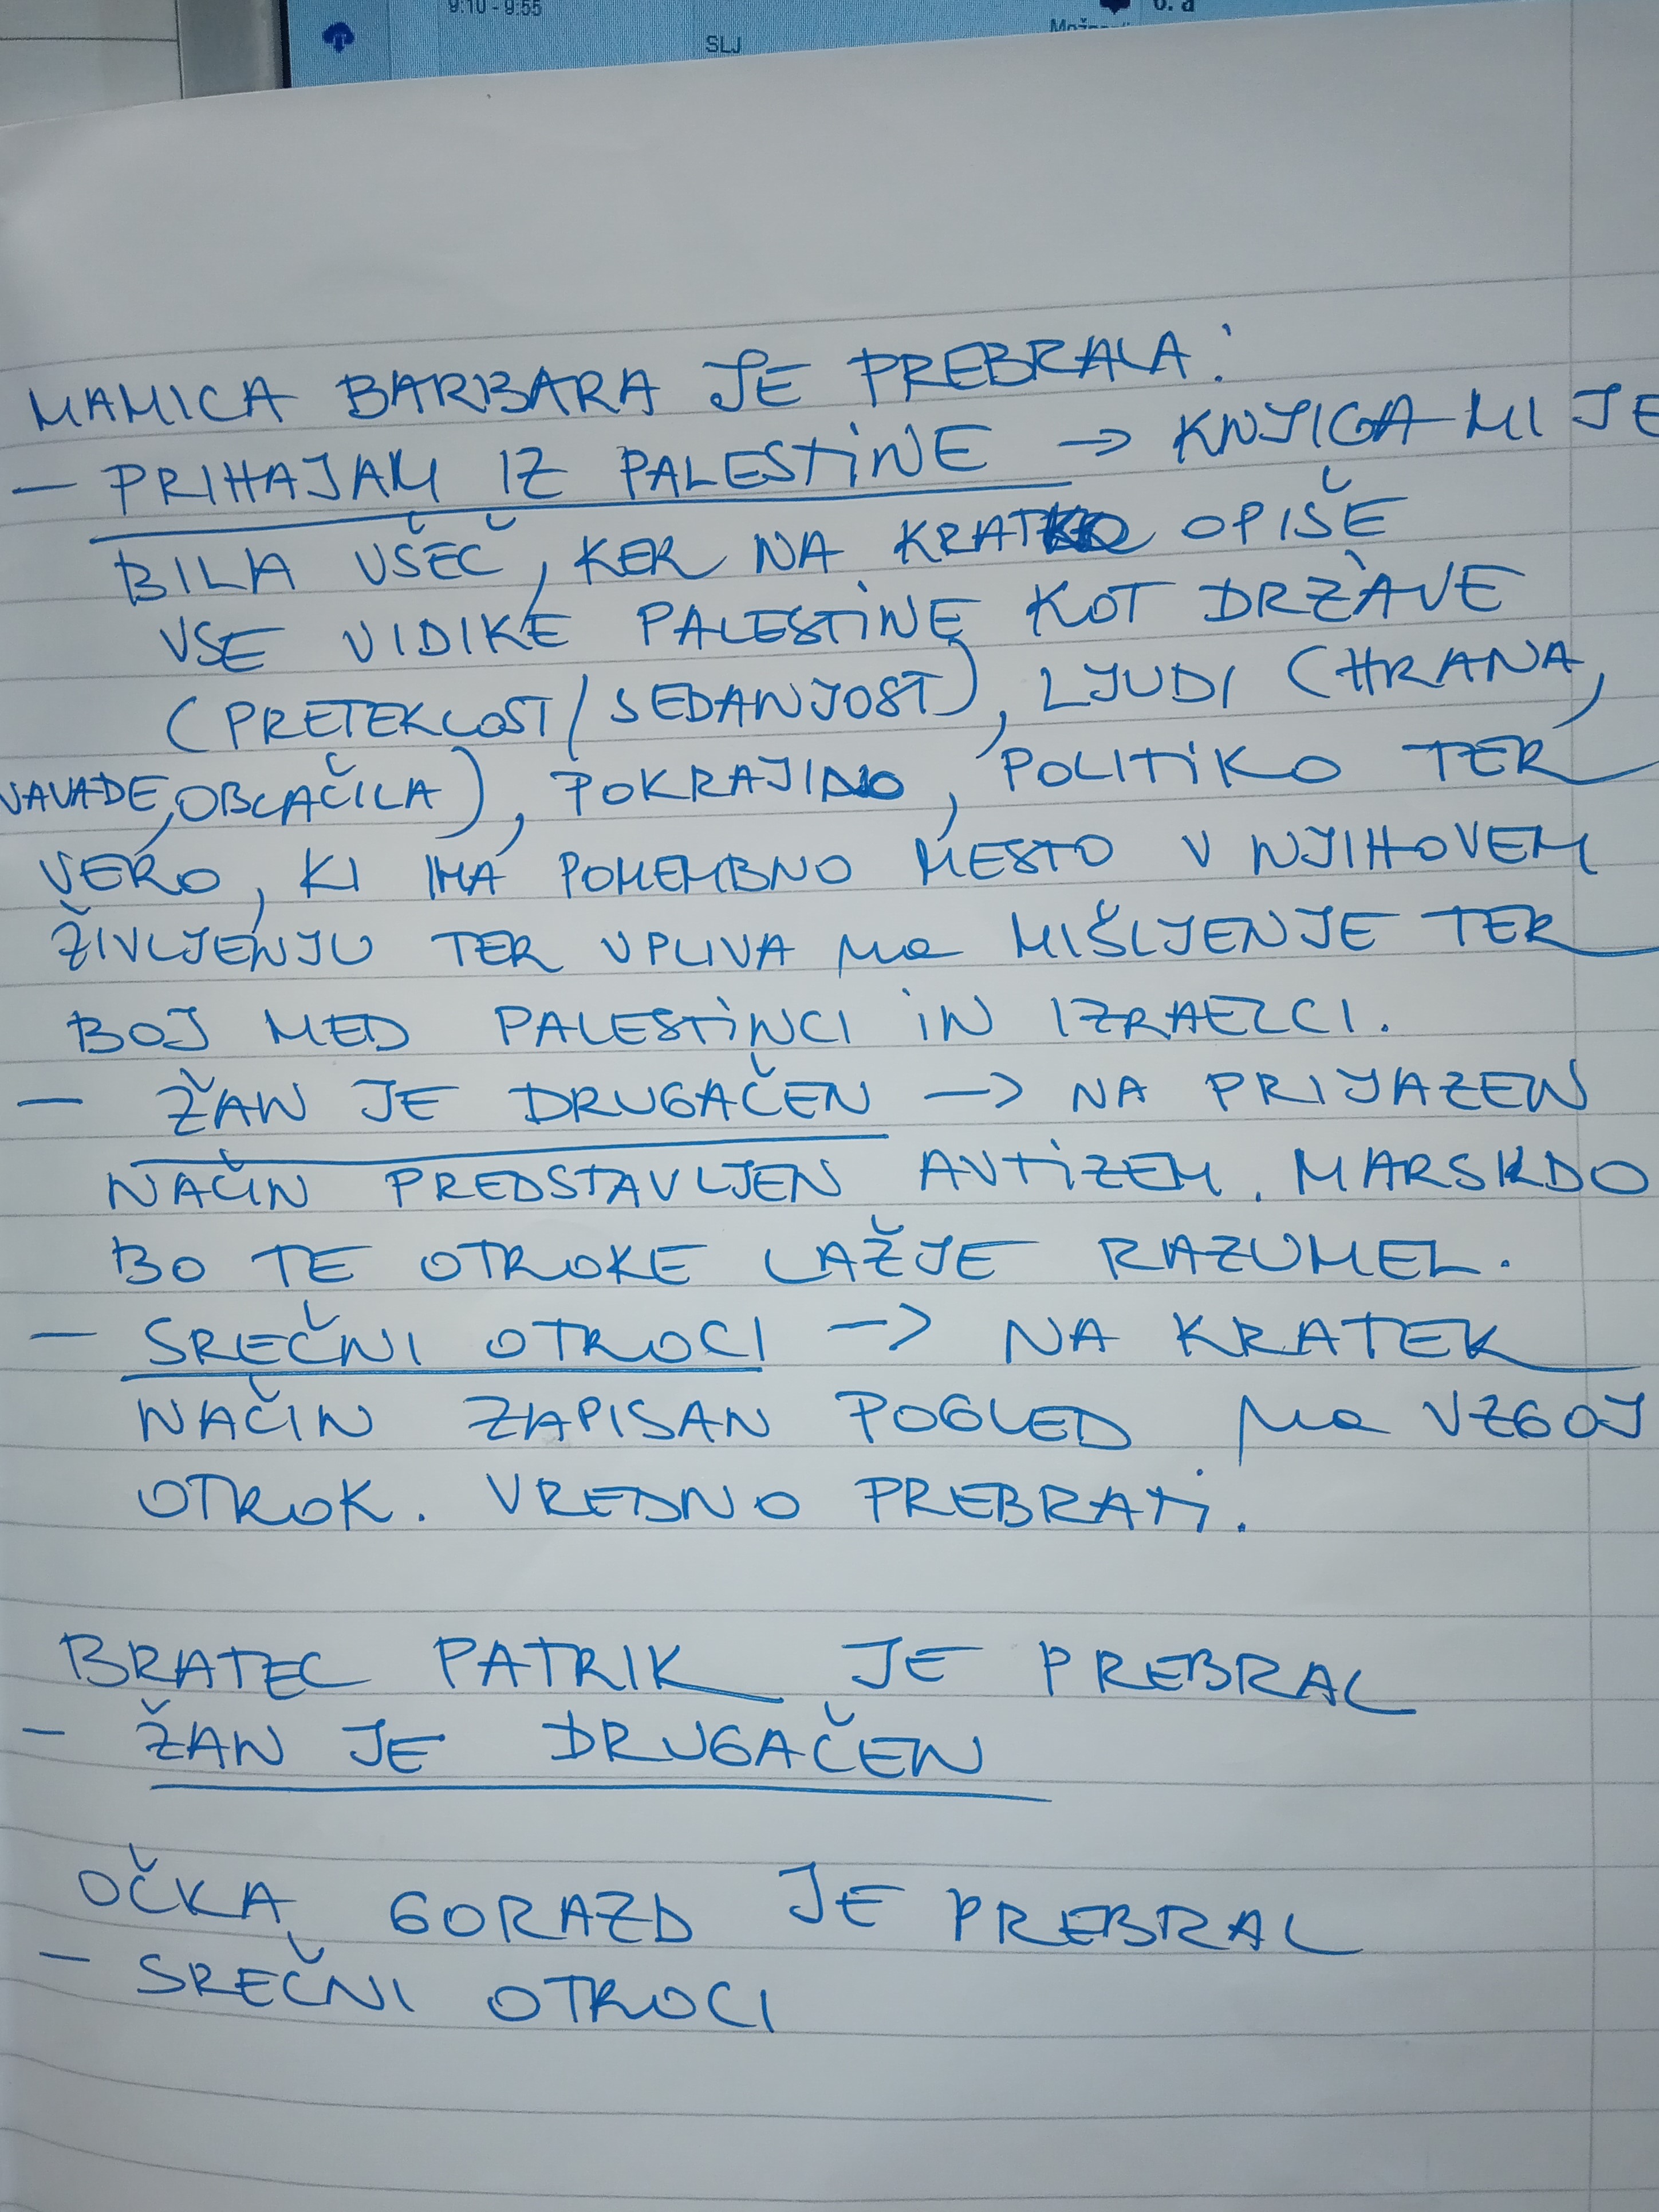 9:10 - 9:55
SLJ
MAMICA BARBARA JE PREBRALA:
- PRIHAJAM IZ PALESTINE → KNJIGA MI JE
BILA VŠEČ, KER NA KRATKO OPIŠE
VSE VIDIKE PALESTINE KOT DRŽAVE
(PRETEKLOST/SEDANJOST), LJUDI (HRANA,
NAVADE, OBLAČILA), POKRAJINO, POLITIKO TER
VERO, KI IMA POMEMBNO MESTO V NJIHOVEM
ŽIVLJENJU TER VPLIVA na MIŠLJENJE TER
BOJ MED PALESTINCI IN IZRAELCI.
- ŽAN JE DRUGAČEN → NA PRIJAZEN
NAČIN PREDSTAVLJEN AVTIZEM. MARSKDO
BO TE OTROKE LAŽJE RAZUMEL.
- SREČNI OTROCI → NA KRATEK
NAČIN ZAPISAN POGLED na VZGOJ
OTROK. VREDNO PREBRATI.
BRATEC PATRIK JE PREBRAL
- ŽAN JE DRUGAČEN
OČKA GORAZD JE PREBRAL
- SREČNI OTROCI